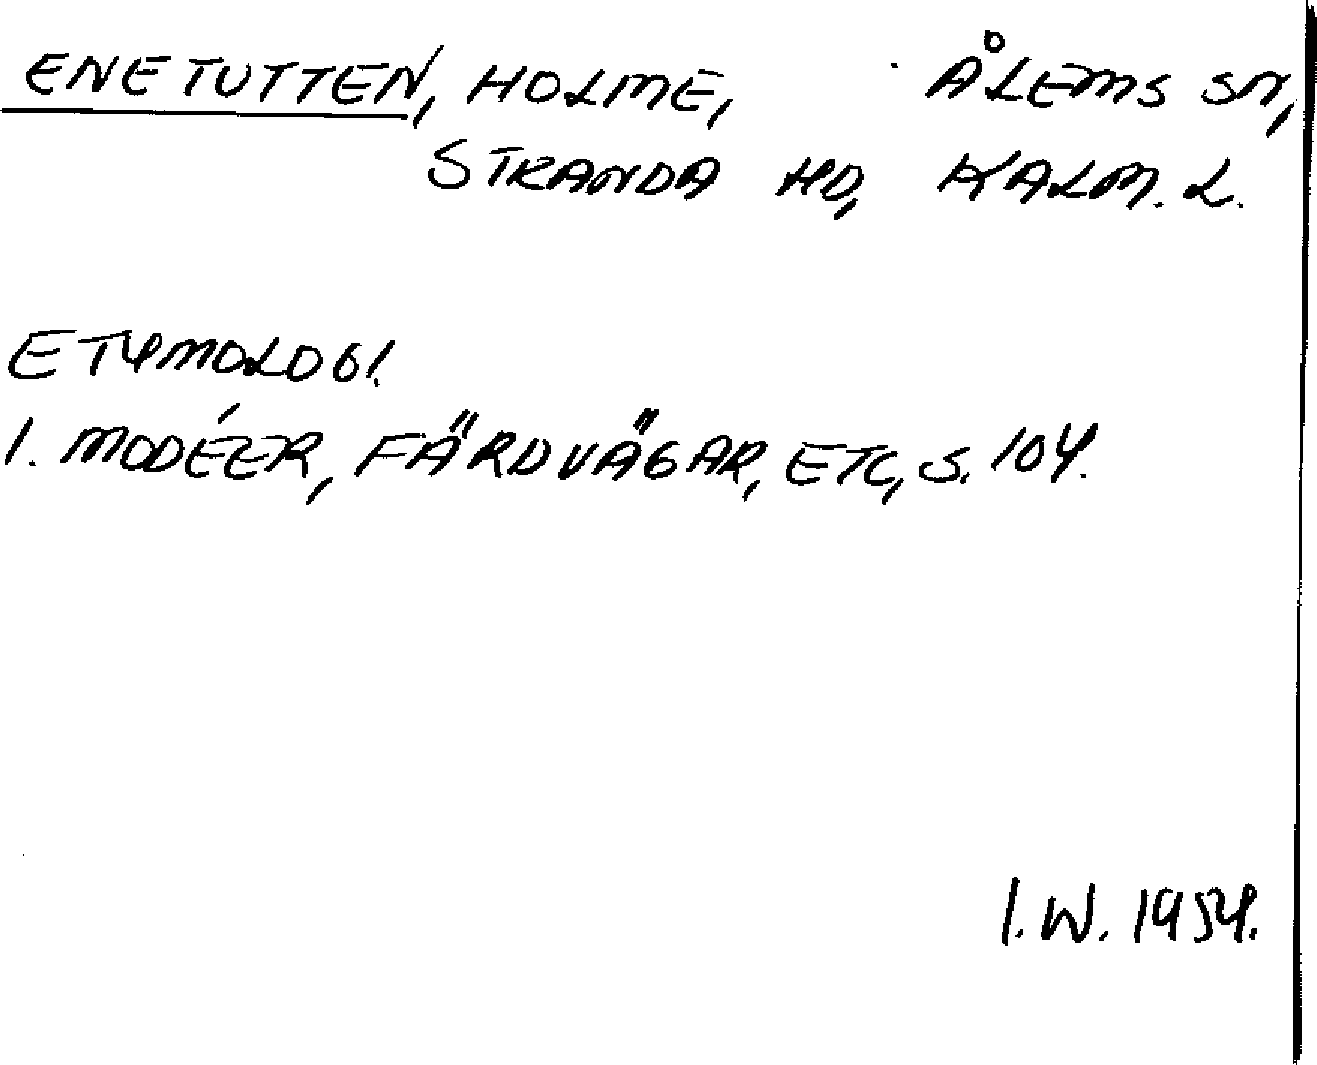 ENETUTTEN, HOLME, ÅLEMS SN,
STRANDA HD, KALM. L.
ETYMOLOGI.
I. MODÉER, FÄRDVÄGAR, ETC, S. 104.
I.W. 1954.